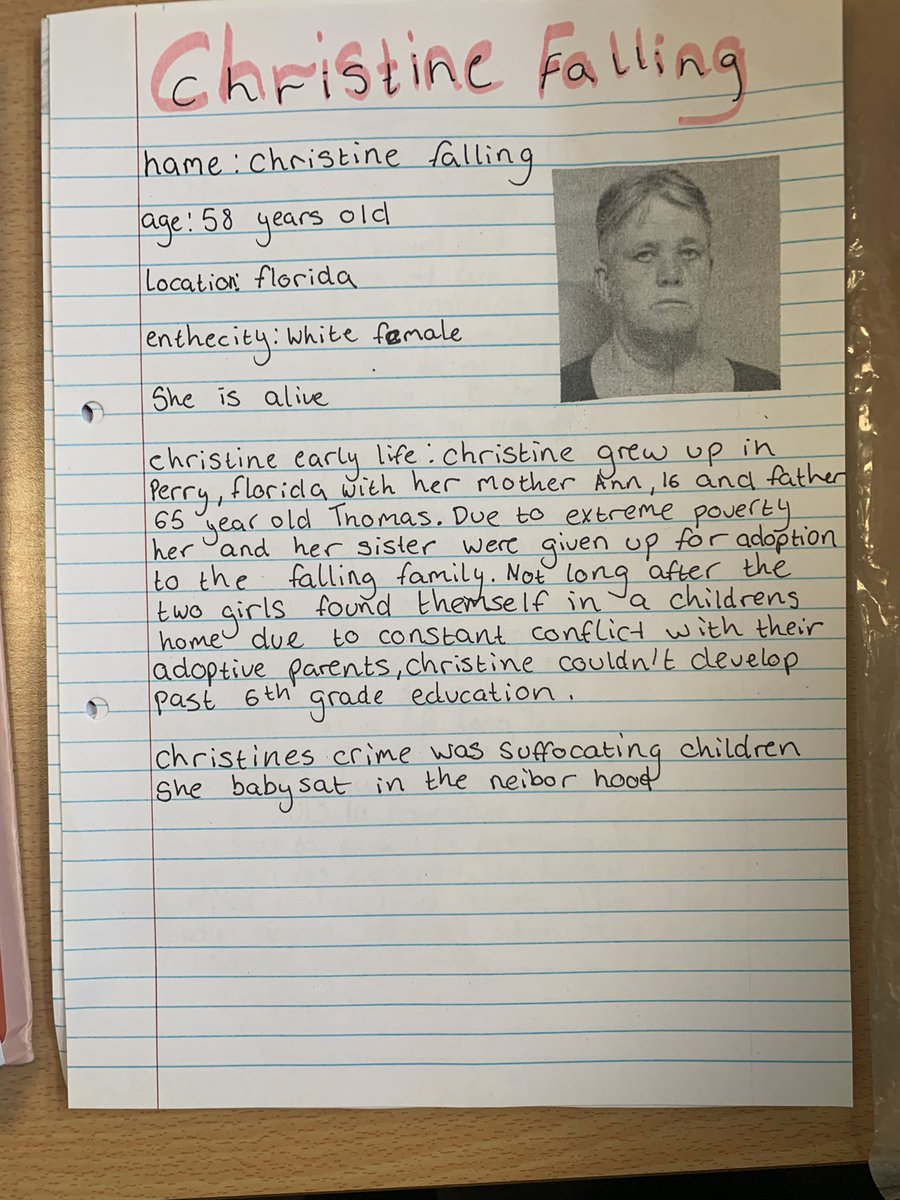 Christine Falling
name: christine falling
age: 58 years old
Location: florida
enthecity: White female
She is alive
christine early life: christine grew up in
Perry, florida with her mother Ann, 16 and father
65 year old Thomas. Due to extreme poverty
her and her sister were given up for adoption
to the falling family. Not long after the
two girls found themself in a childrens
home due to constant conflict with their
adoptive parents, christine couldn't develop
past 6th grade education.
christines crime was suffocating children
She babysat in the neibor hood